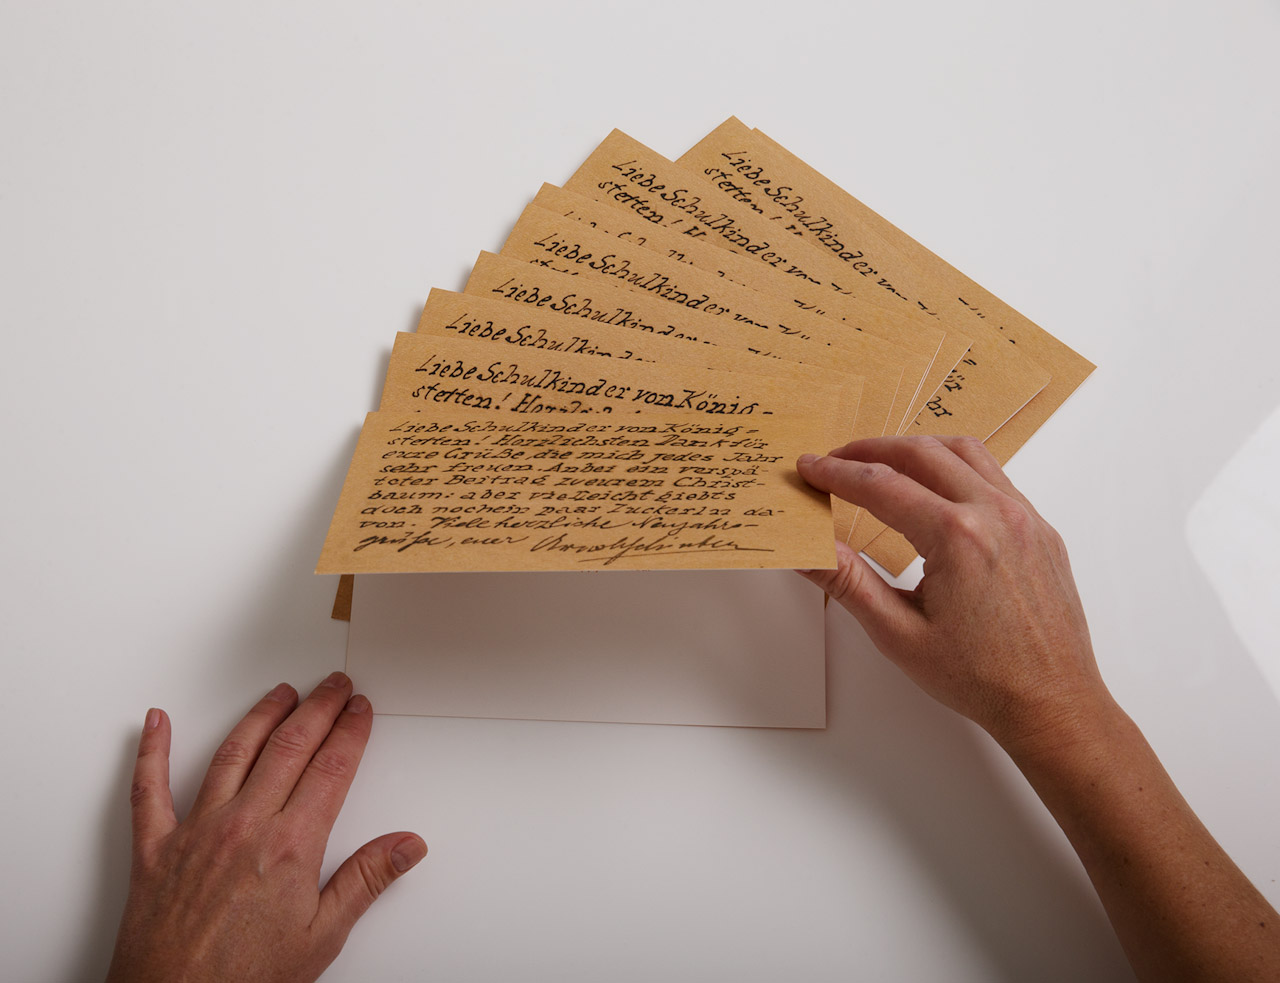 Liebe Schulkinder von
stetten! H
Liebe Schulkinder von
stetten!
Liebe Schulkinder von
Liebe Schulkinder
Liebe Schulkinder
Liebe Schulkinder von König-
stetten!
Liebe Schulkinder von König=
stetten! Herzlichsten Dank für
eure Grüße, die mich jedes Jahr
sehr freuen. Anbei ein verspä-
teter Beitrag zu eurem Christ-
baum: aber vielleicht giebts
doch noch ein paar Zuckerln da-
von. Viele herzliche Neujahrs-
grüße, euer
für
hr